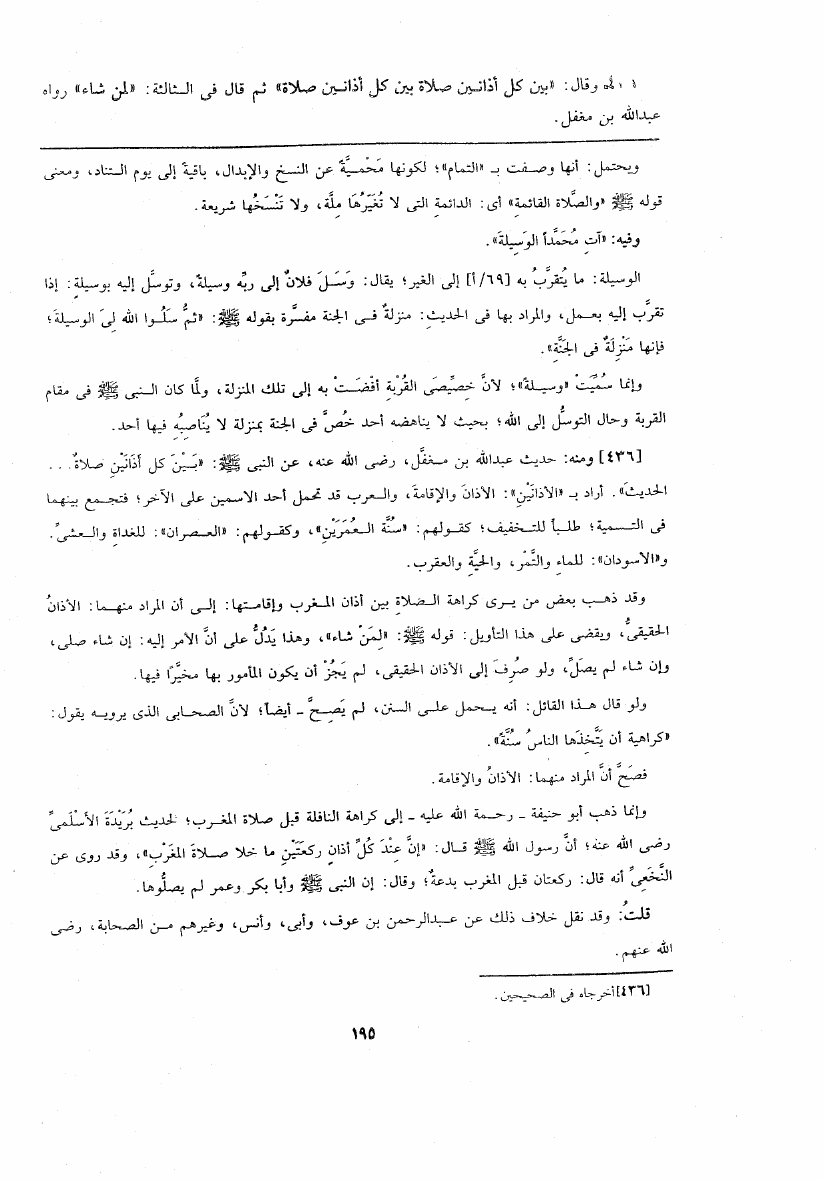 وقال: «بين كل أذانين صلاة بين كل أذانين صلاة» ثم قال فى الثالثة: «لمن شاء» رواه
عبدالله بن مغفل.
ويحتمل: أنها وصفت بـ «التمام»؛ لكونها مَحْمـيَّةً عن النسخ والإبدال، باقيةً إلى يوم التناد، ومعنى
قوله ﷺ «والصَّلاة القائمةِ» أى: الدائمةِ التى لا تُغَيِّرُهَا مِلَّة، ولا تَنْسَخُها شريعة.
وفيه: «آتِ مُحَمَّداً الوَسِيلةَ».
الوسيلة: ما يُتقرَّبُ به [٦٩/أ] إلى الغير؛ يقال: وَسَلَ فلانٌ إلى ربِّه وسيلةً، وتوسَّل إليه بوسيلةٍ: إذا
تقرَّب إليه بعمل، والمراد بها فى الحديثِ: منزلةٌ فى الجنة مفسَّرة بقوله ﷺ: «ثُمَّ سَلُوا الله لِىَ الوسيلةَ؛
فإنها مَنْزِلَةٌ فى الجَنَّةِ».
وإنما سُمِّيَتْ «وسيلةً»؛ لأنَّ خِصِّيصَى القُرْبةِ أفْضَتْ به إلى تلك المنزلة، ولمَّا كان النبى ﷺ فى مقام
القربة وحال التوسلُّ إلى الله؛ بحيث لا يناهضه أحد خُصَّ فى الجنة بمنزلة لا يُنَاصِبُه فيها أحد.
[٤٣٦] ومنه: حديث عبدالله بن مغفَّل، رضى الله عنه، عن النبى ﷺ: «بَيْنَ كل أَذَانَيْنِ صلاةٌ...
الحديثَ». أراد بـ «الأذانَيْنِ»: الأذانَ والإقامةَ، والعرب قد تحمل أحد الاسمين على الآخر؛ فتجمع بينهما
فى التسمية؛ طلباً للتخفيف؛ كقولهم: «سُنَّة العُمَرَيْنِ»، وكقولهم: «العصران»: للغداة والعشىِّ.
و«الأسودان»: للماء والتَّمْر، والحيَّةِ والعقرب.
وقد ذهب بعض من يرى كراهة الصلاةِ بين أذان المغرب وإقامتها: إلى أن المراد منهما: الأذانُ
الحقيقىُّ، ويقضى على هذا التأويل: قوله ﷺ: «لِمَنْ شاء»، وهذا يَدُلُّ على أنَّ الأمر إليه: إن شاء صلى،
وإن شاء لم يصلِّ، ولو صُرِفَ إلى الأذان الحقيقى، لم يَجُزْ أن يكون المأمور بها مخيَّرًا فيها.
ولو قال هذا القائل: أنه يحمل على السنن، لم يَصِحَّ - أيضاً؛ لأنَّ الصحابى الذى يرويه يقول:
«كراهية أن يَتَّخِذَها الناسُ سُنَّةً».
فصَحَّ أنَّ المراد منهما: الأذانُ والإقامة.
وإنما ذهب أبو حنيفة - رحمة الله عليه - إلى كراهة النافلة قبل صلاة المغرب؛ لحديث بُرَيْدَةَ الأَسْلَمِىِّ
رضى الله عنه؛ أنَّ رسول الله ﷺ قال: «إنَّ عِنْدَ كُلِّ أذانٍ ركعتَيْنِ ما خلا صلاةَ المَغْرَبِ»، وقد روى عن
النَّخَعِىِّ أنه قال: ركعتان قبل المغرب بدعةٌ؛ وقال: إن النبى ﷺ وأبا بكر وعمر لم يصلُّوها.
قلتُ: وقد نقل خلاف ذلك عن عبدالرحمن بن عوف، وأبى، وأنس، وغيرهم من الصحابة، رضى
الله عنهم.
[٤٣٦] أخرجاه فى الصحيحين.
١٩٥